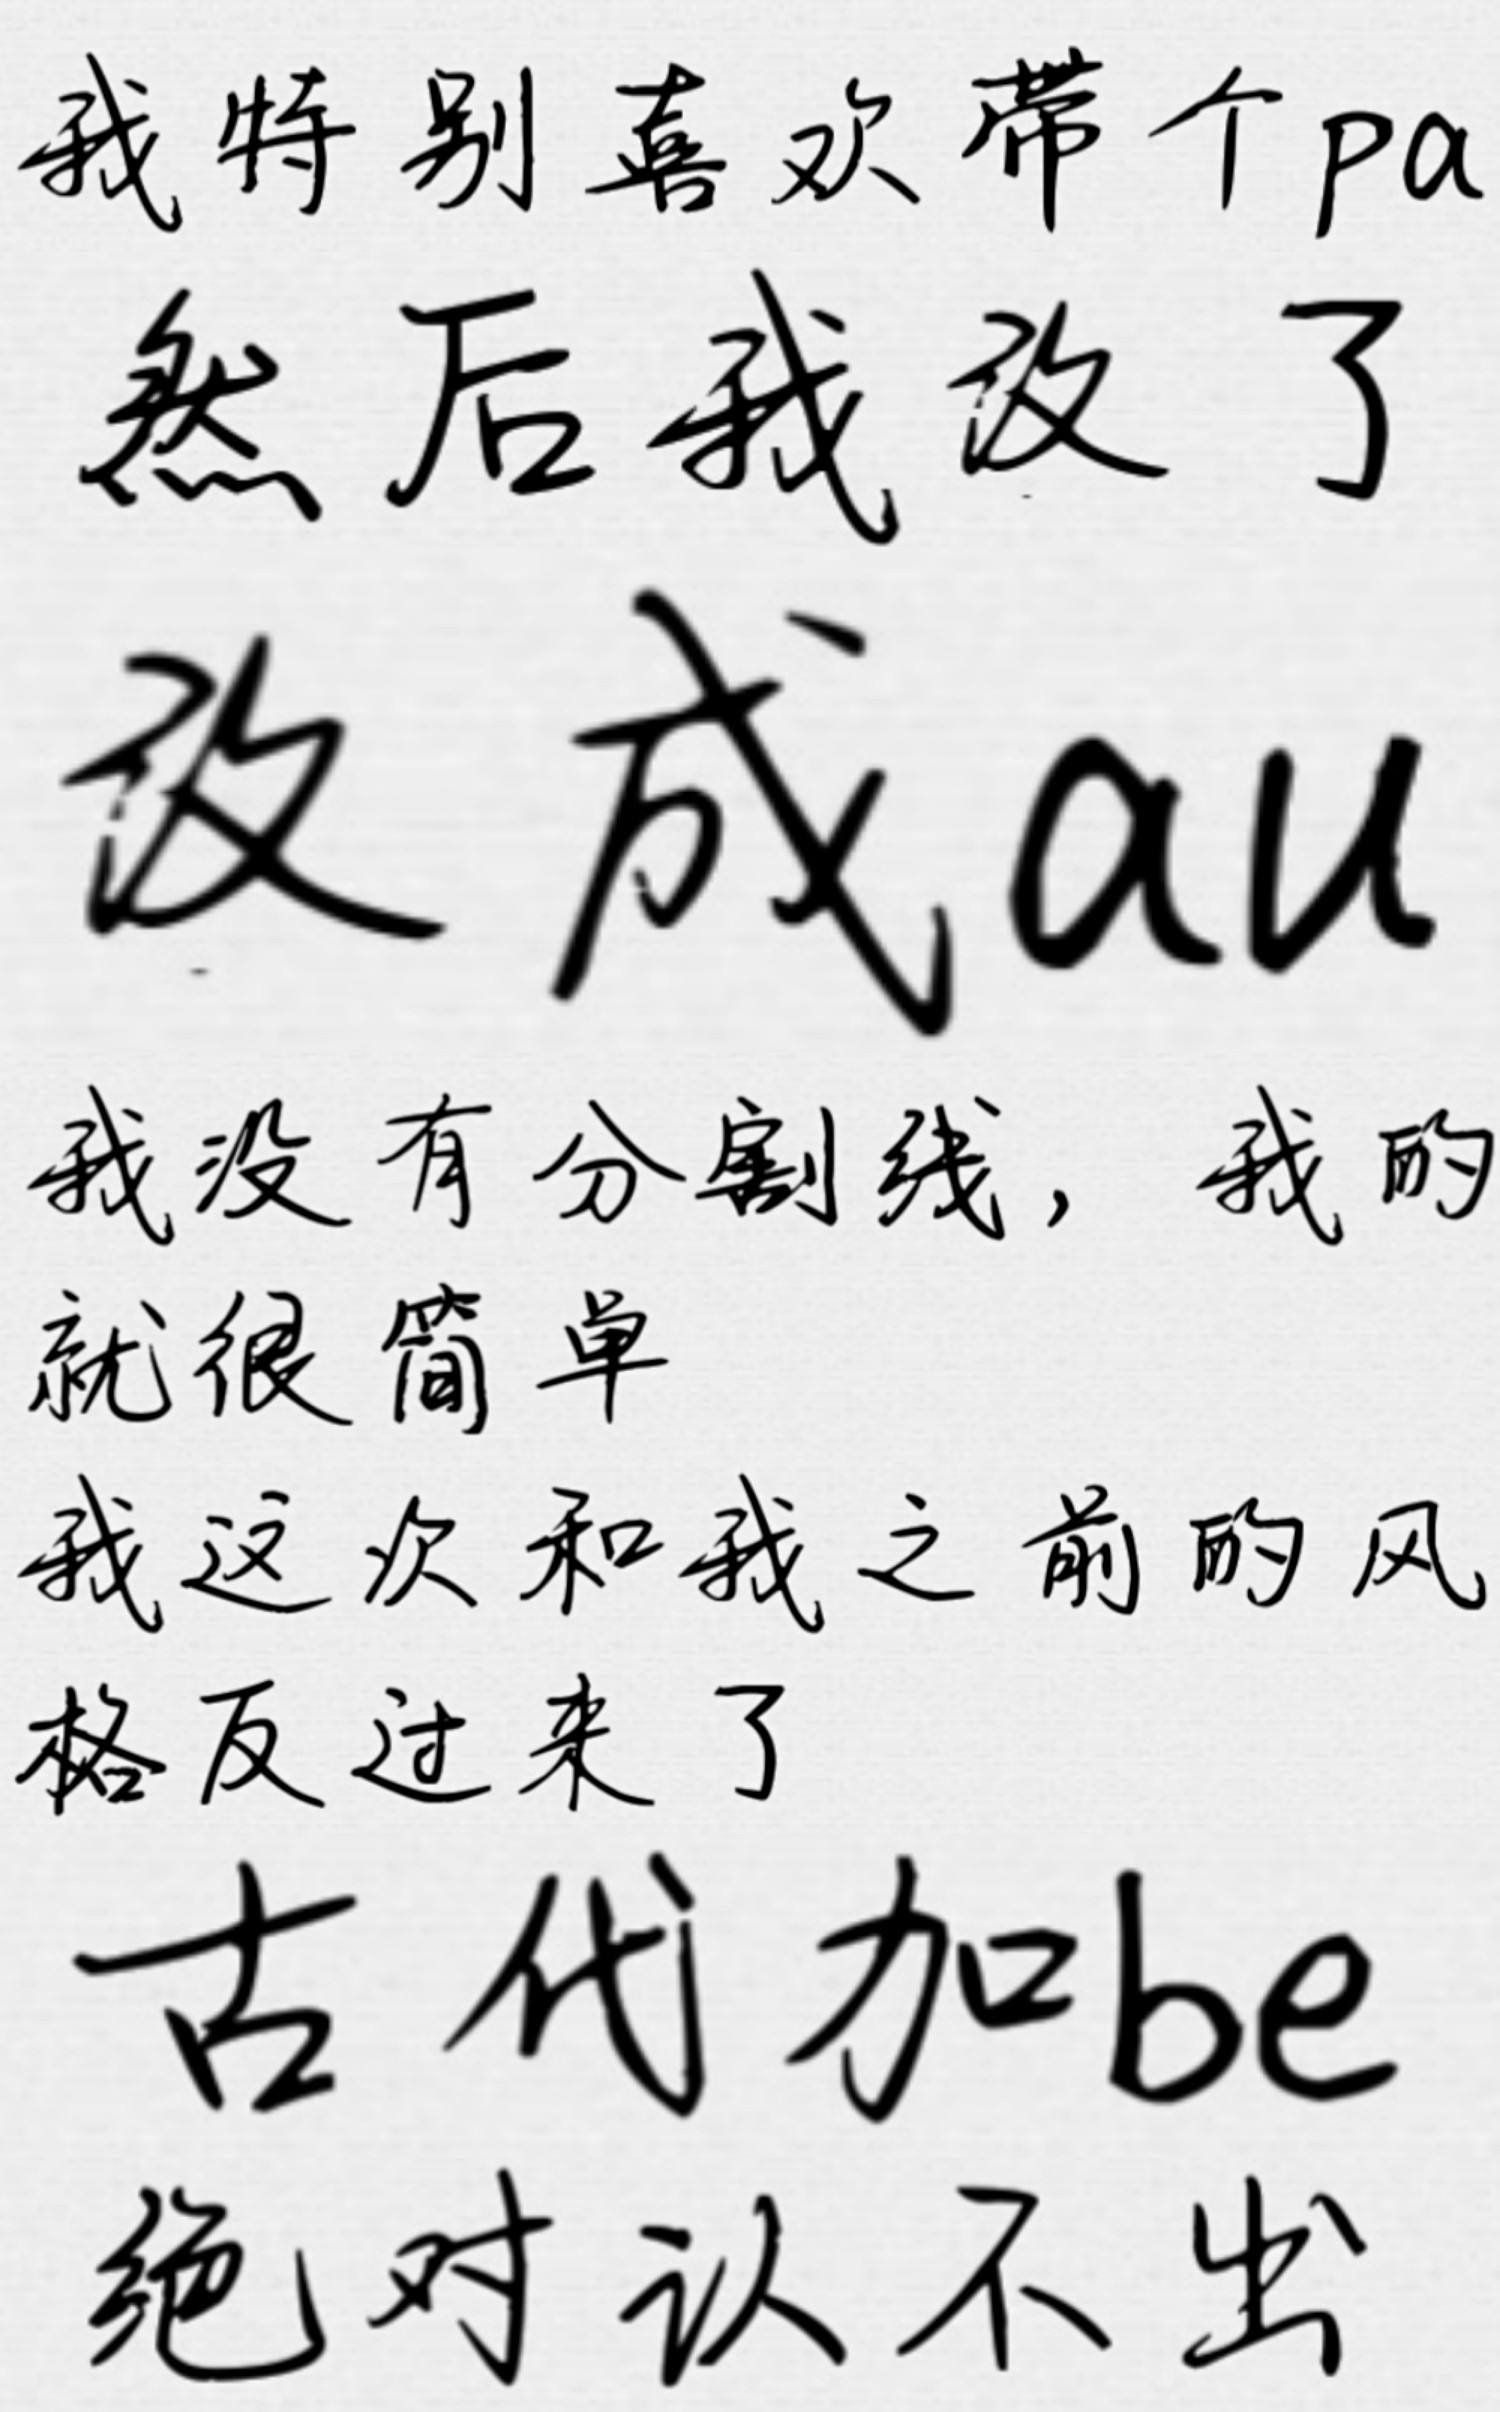 我特别喜欢带个pa
然后我改了
改成au
我没有分割线，我的
就很简单
我这次和我之前的风
格反过来了
古代加be
绝对认不出